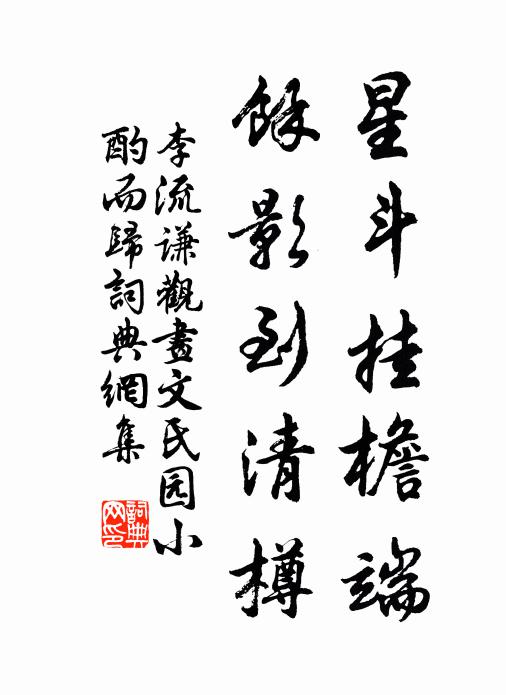 星斗挂檐端
餘影到清樽
李流谦觀畫文民园小
酌而歸詞典網集
詞典网印